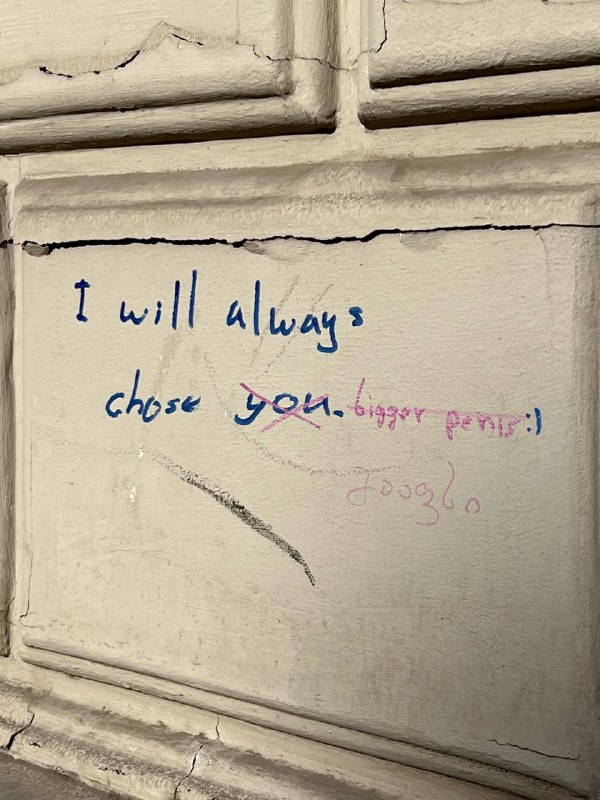 I will always
chose you. bigger penis :)